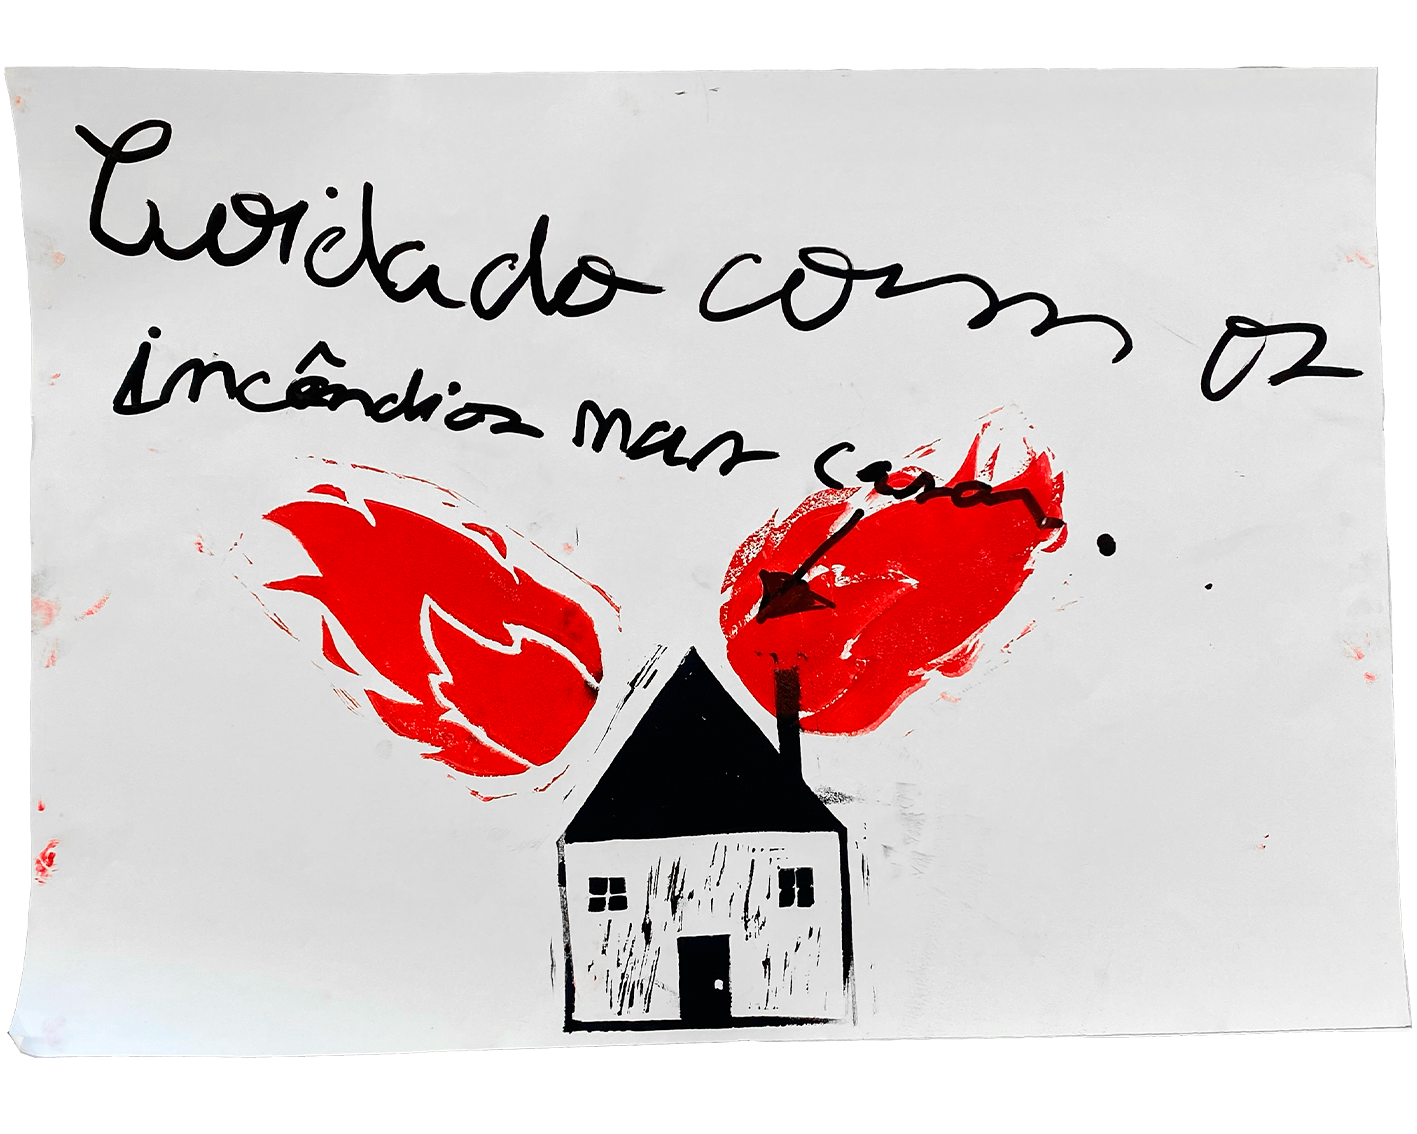 Cuidado com os
incêndios nas casas.